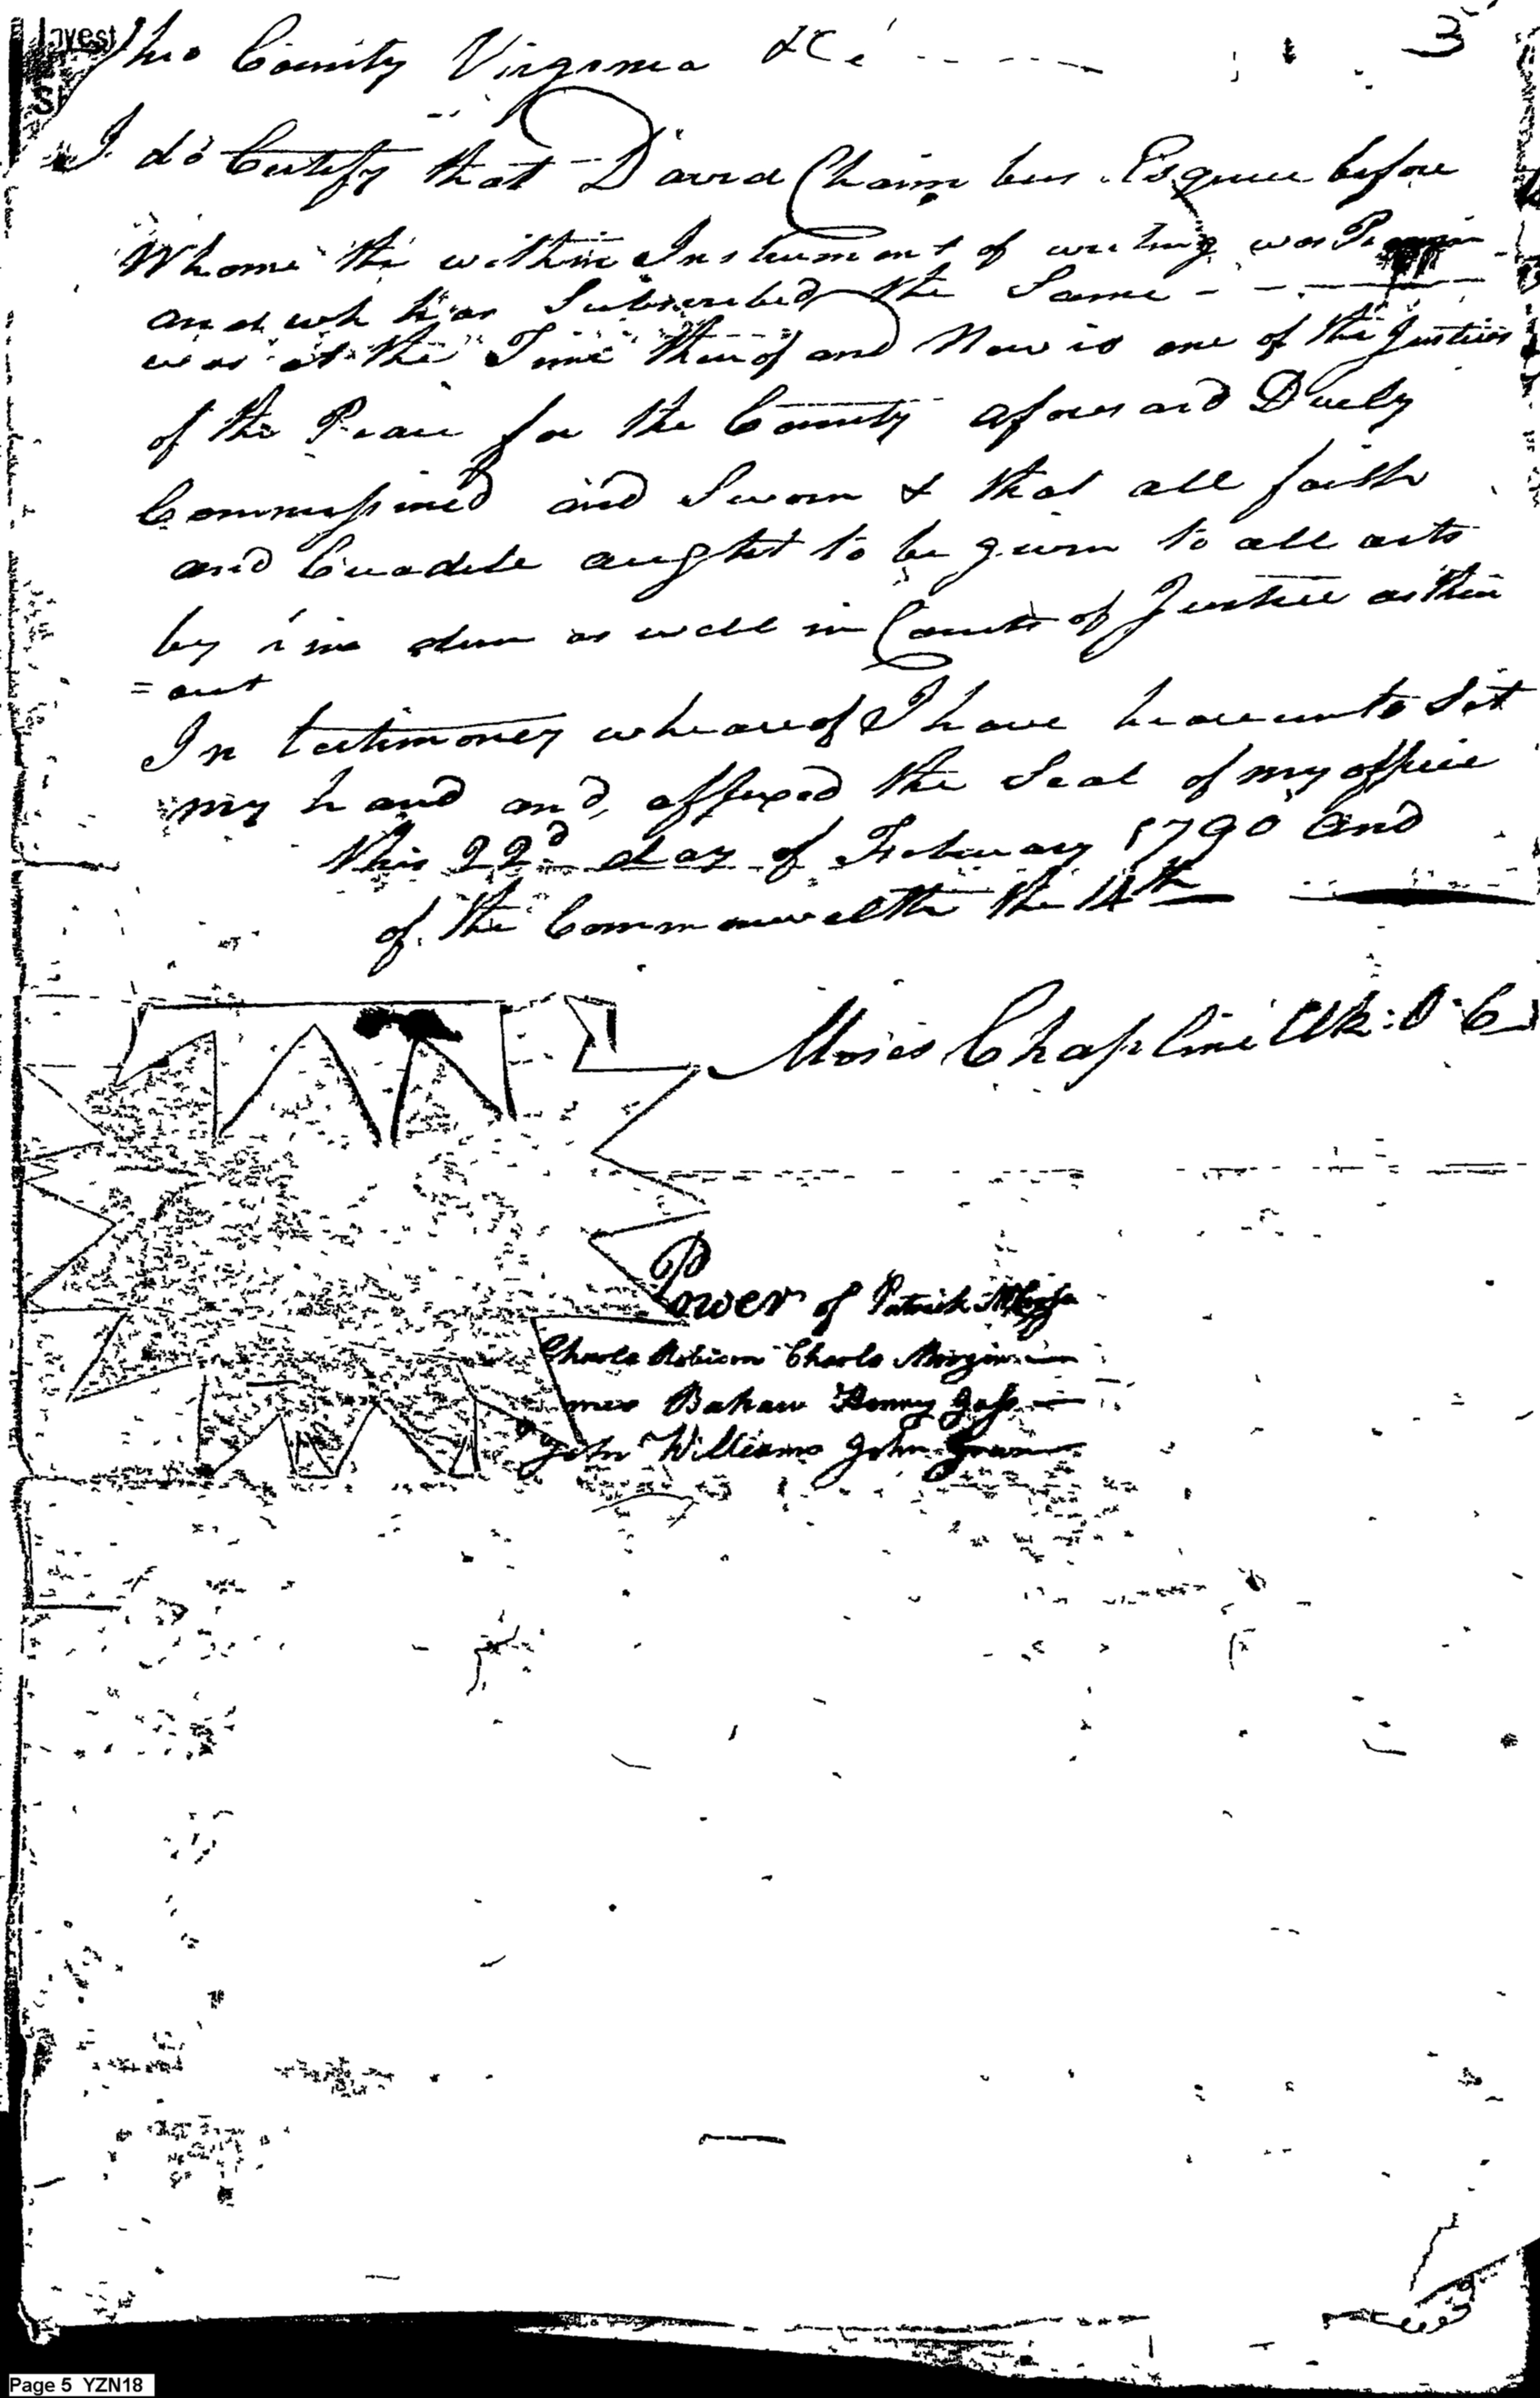 Invest
3
hio County Virginia &C
I do Certify that David Chambers Esquire before
Whome the within Instrument of writing was
and wh has Subscribed the Same
was at the Time thereof and Now is one of the Justices
of the Peace for the County aforesaid Duely
Commissined and Sworn & that all faith
and Creadete aught to be given to all acts
by him dun as well in Courts of Justice as thear
= out
In testimoney wheareof I have heareunto Set
my hand and affixed the Seal of my office
this 22d day of February 1790 and
of the Commonwealth the 14th
Moses Chapline Clk: O C
Power of Patrick
Charls Robison Charls
Henny Goss
John Williams John
Page 5 YZN18